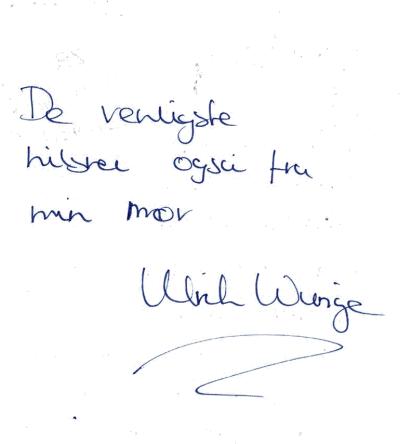 De venligste
hilsner også fra
min mor
Ulrich Wunige